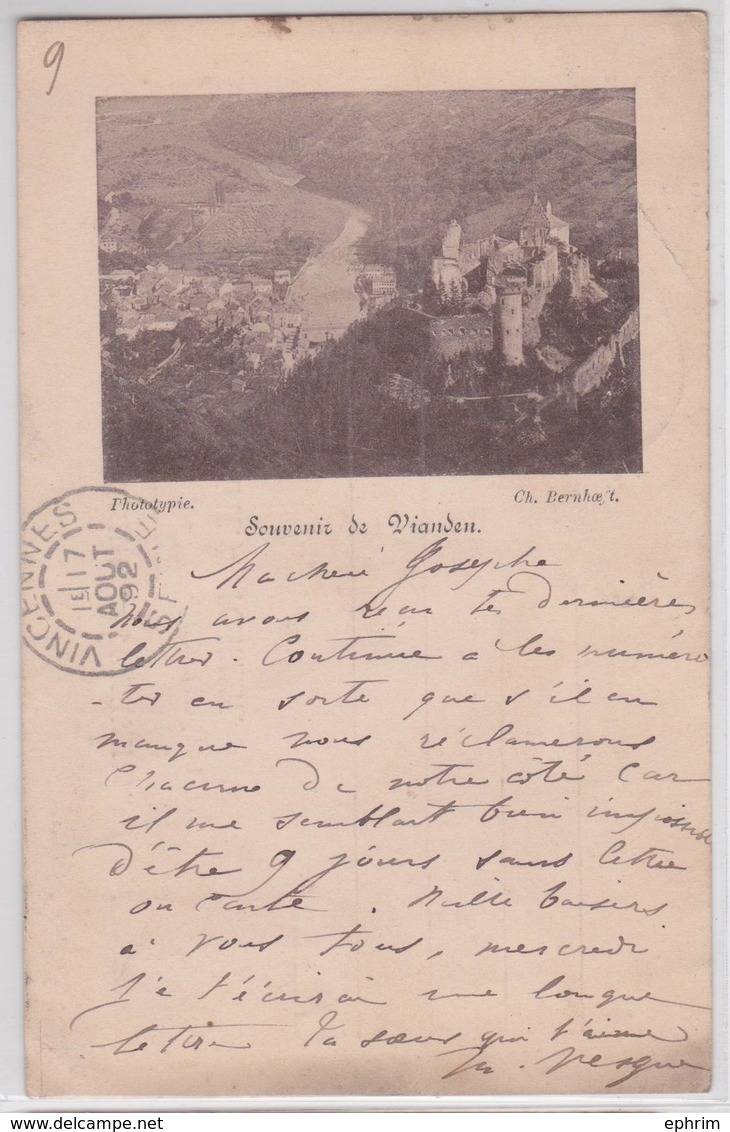 9
Phototypie.
Ch. Bernhœft.
Souvenir de Vianden.
VINCENNES
1E 17
AOUT
92
SEINE
Ma chère Josephe
nous avons reçu tes dernières
lettres. Continue à les numéro
-ter en sorte que s'il en
manque nous réclamerons
chacune de notre côté car
il me semblait bien impossible
d'être 9 jours sans lettre
ou carte. Mille baisers
à vous tous, mercredi
je t'écrirai une longue
lettre Ta sœur qui t'aime
M. Vesque
ephrim
Delcampe.net